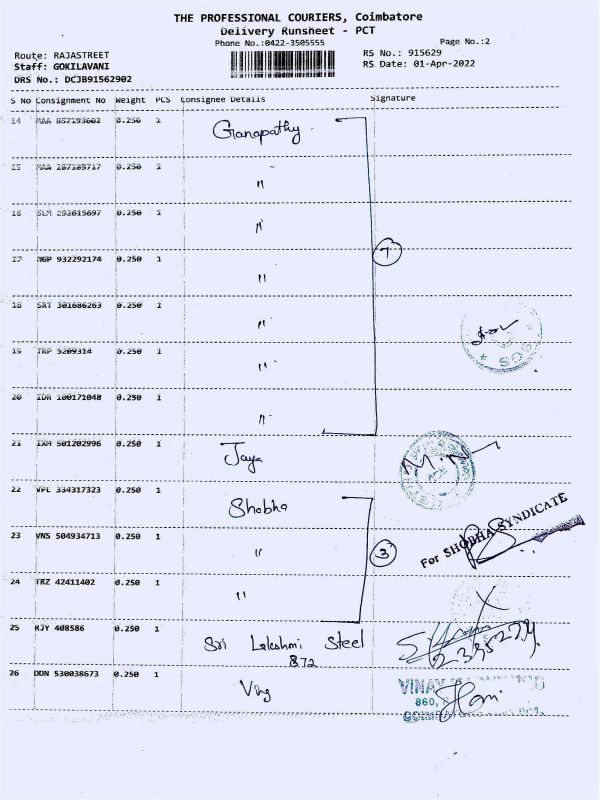 THE PROFESSIONAL COURIERS, Coimbatore
Delivery Runsheet - PCT
Phone No.:0422-3505555
Page No.:2
Route: RAJASTREET
RS No.: 915629
Staff: GOKILAVANI
RS Date: 01-Apr-2022
DRS No.: DCJB91562902
S No Consignment No Weight PCS Consignee Details Signature
14 MAA 857193602 0.250 1 Ganapathy
15 MAA 287185717 0.250 1 "
16 SLM 292615697 0.250 1 "
17 MGP 932292174 0.250 1 " 7
18 SRT 301686263 0.250 1 "
19 TRP 5209314 0.250 1 "
20 IDR 100171048 0.250 1 "
21 IXM 501202996 0.250 1 Jaya
22 VPL 334317323 0.250 1 Shobha
For SHOBHA SYNDICATE
23 VNS 504934713 0.250 1 " 3
24 TRZ 42411402 0.250 1 "
25 RJY 408586 0.250 1 Sri Lakshmi Steel
872
26 DDN 530038673 0.250 1
VINAY
860,